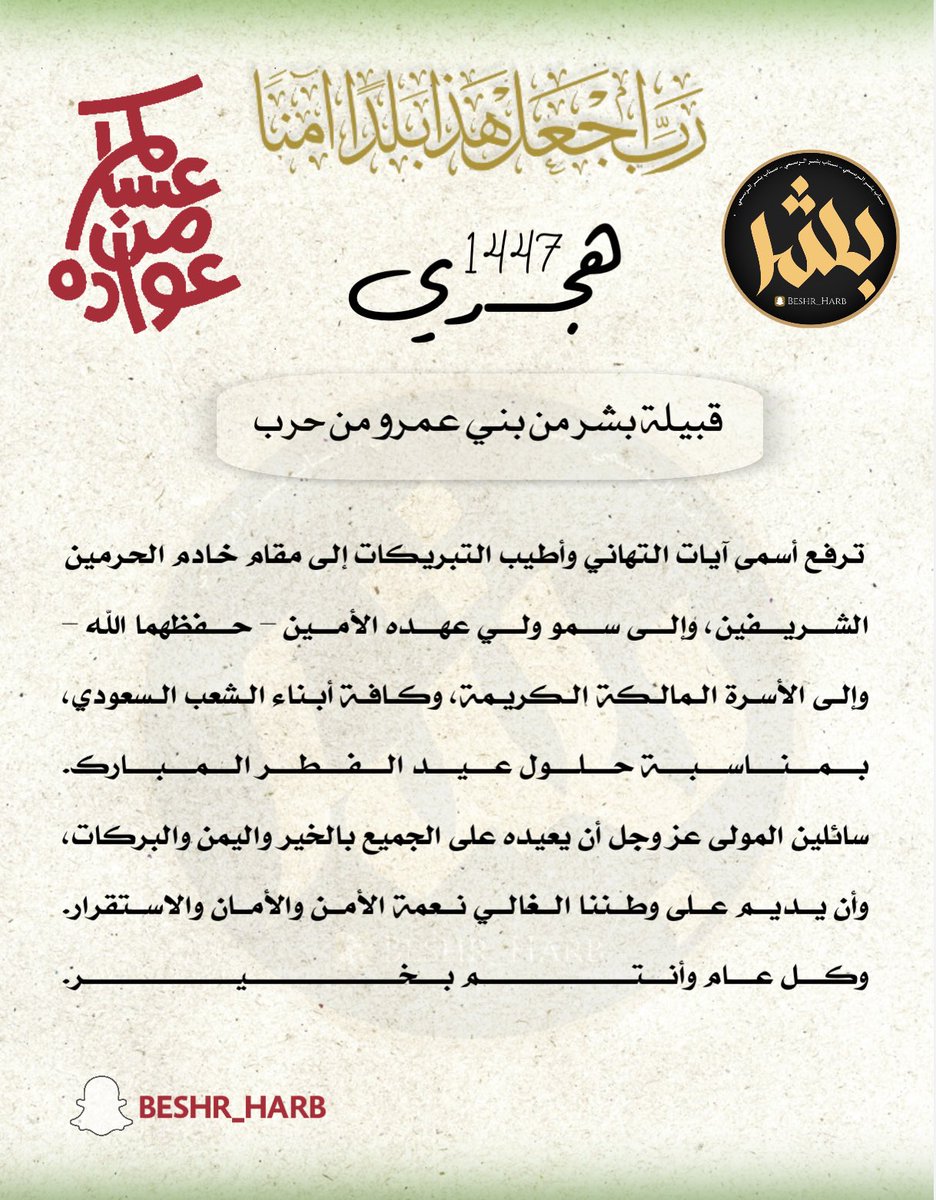 رَبِّ اجْعَلْ هَذَا بَلَدًا آمِنًا
عساكم
من
عواده
بشر
BESHR_HARB
1447
هجري
قبيلة بشر من بني عمرو من حرب
ترفع أسمى آيات التهاني وأطيب التبريكات إلى مقام خادم الحرمين
الشريفين، وإلى سمو ولي عهده الأمين – حفظهما الله –
وإلى الأسرة المالكة الكريمة، وكافة أبناء الشعب السعودي،
بمناسبة حلول عيد الفطر المبارك.
سائلين المولى عز وجل أن يعيده على الجميع بالخير واليمن والبركات،
وأن يديم على وطننا الغالي نعمة الأمن والأمان والاستقرار.
وكل عام وأنتم بخير.
BESHR_HARB